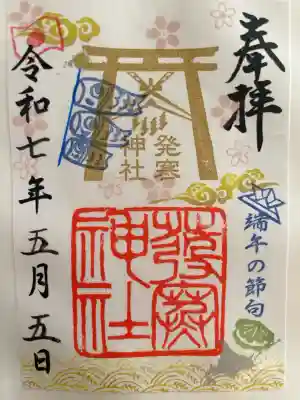 奉拝
発寒
神社
端午の節句
發寒
神社
令和七年五月五日